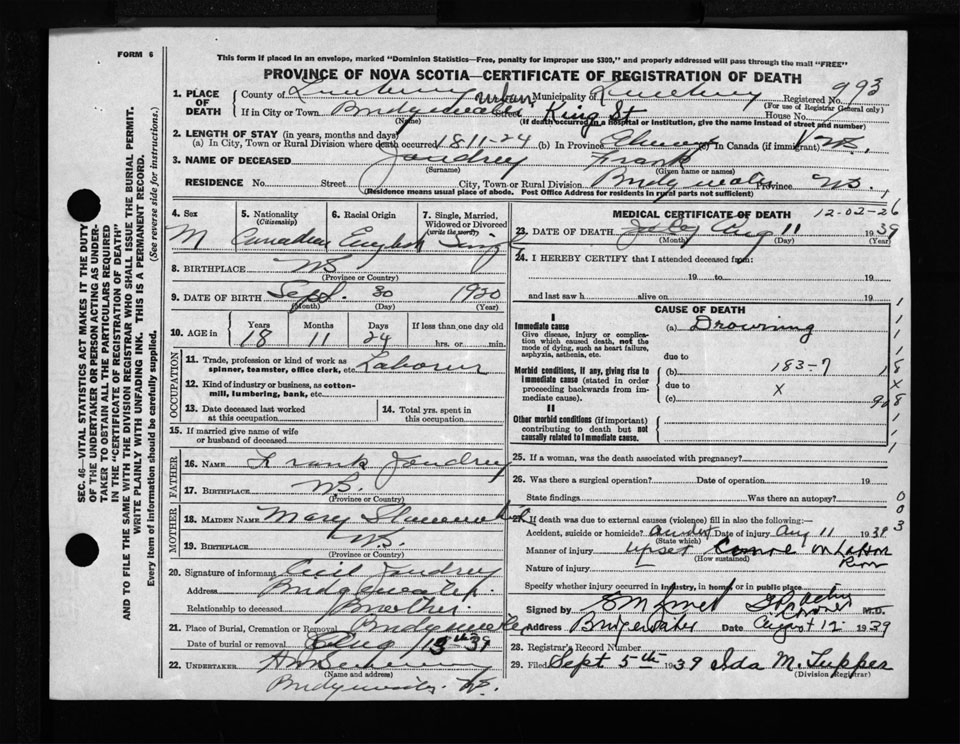 FORM 6
This form if placed in an envelope, marked "Dominion Statistics—Free, penalty for improper use $300," and properly addressed will pass through the mail "FREE"
PROVINCE OF NOVA SCOTIA—CERTIFICATE OF REGISTRATION OF DEATH
1. PLACE OF DEATH
County of Lunenburg urban Municipality of Lunenburg Registered No. 993
(For use of Registrar General only)
If in City or Town Bridgewater Street King St House No.
(Name) (If death occurred in a hospital or institution, give the name instead of street and number)
2. LENGTH OF STAY (in years, months and days)
(a) In City, Town or Rural Division where death occurred 18 11-24 (b) In Province (c) In Canada (if immigrant)
3. NAME OF DECEASED Jaudrey Frank
(Surname) (Given name or names)
RESIDENCE No. Street City, Town or Rural Division Bridgewater Province N.S.
(Residence means usual place of abode. Post Office Address for residents in rural parts not sufficient)
4. Sex
M
5. Nationality (Citizenship)
Canadian
6. Racial Origin
English
7. Single, Married, Widowed or Divorced (write the word)
Single
8. BIRTHPLACE N.S.
(Province or Country)
9. DATE OF BIRTH Sept. 30 1920
(Month) (Day) (Year)
10. AGE in
Years Months Days If less than one day old
18 11 24 hrs. or min.
OCCUPATION
11. Trade, profession or kind of work as spinner, teamster, office clerk, etc. Laborer
12. Kind of industry or business, as cotton-mill, lumbering, bank, etc.
13. Date deceased last worked at this occupation
14. Total yrs. spent in this occupation
15. If married give name of wife or husband of deceased
FATHER
16. NAME Frank Jaudrey
17. BIRTHPLACE N.S.
(Province or Country)
MOTHER
18. MAIDEN NAME Mary
19. BIRTHPLACE N.S.
(Province or Country)
20. Signature of informant Cecil Jaudrey
Address Bridgewater
Relationship to deceased Brother
21. Place of Burial, Cremation or Removal Bridgewater
Date of burial or removal Aug 13th 39
22. UNDERTAKER
(Name and address)
Bridgewater N.S.
MEDICAL CERTIFICATE OF DEATH
12-02-26
23. DATE OF DEATH Aug 11 1939
(Month) (Day) (Year)
24. I HEREBY CERTIFY that I attended deceased from:
19 to 19
and last saw h alive on 19
CAUSE OF DEATH
I
Immediate cause
Give disease, injury or complication which caused death, not the mode of dying, such as heart failure, asphyxia, asthenia, etc.
(a) Drowning
due to
Morbid conditions, if any, giving rise to immediate cause (stated in order proceeding backwards from immediate cause).
(b) 183-7
due to X
(c)
II
Other morbid conditions (if important) contributing to death but not causally related to immediate cause.
25. If a woman, was the death associated with pregnancy?
26. Was there a surgical operation? Date of operation 19
State findings Was there an autopsy?
27. If death was due to external causes (violence) fill in also the following:
Accident, suicide or homicide? Date of injury Aug 11 1939
(State which)
Manner of injury upset Canoe in LaHave River
(How sustained)
Nature of injury
Specify whether injury occurred in industry, in home, or in public place
Signed by Coroner M.D.
Address Bridgewater Date August 12 1939
28. Registrar's Record Number
29. Filed Sept 5th 1939 Ida M. Tupper
(Division Registrar)
SEC. 46—VITAL STATISTICS ACT MAKES IT THE DUTY
OF THE UNDERTAKER OR PERSON ACTING AS UNDER-
TAKER TO OBTAIN ALL THE PARTICULARS REQUIRED
IN THE "CERTIFICATE OF REGISTRATION OF DEATH"
AND TO FILE THE SAME WITH THE DIVISION REGISTRAR WHO SHALL ISSUE THE BURIAL PERMIT.
WRITE PLAINLY WITH UNFADING INK. THIS IS A PERMANENT RECORD.
Every item of information should be carefully supplied. (See reverse side for instructions.)